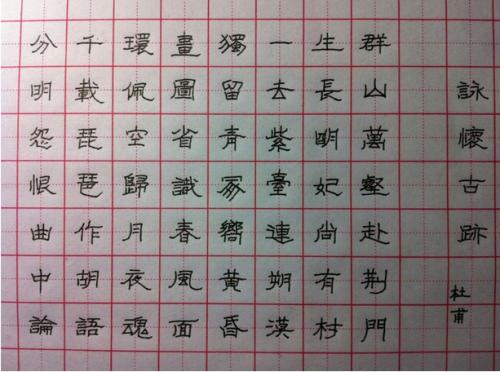 詠懷古跡
杜甫
群山萬壑赴荆門
生長明妃尚有村
一去紫臺連朔漠
獨留青冢嚮黄昏
畫圖省識春風面
環佩空歸月夜魂
千載琵琶作胡語
分明怨恨曲中論